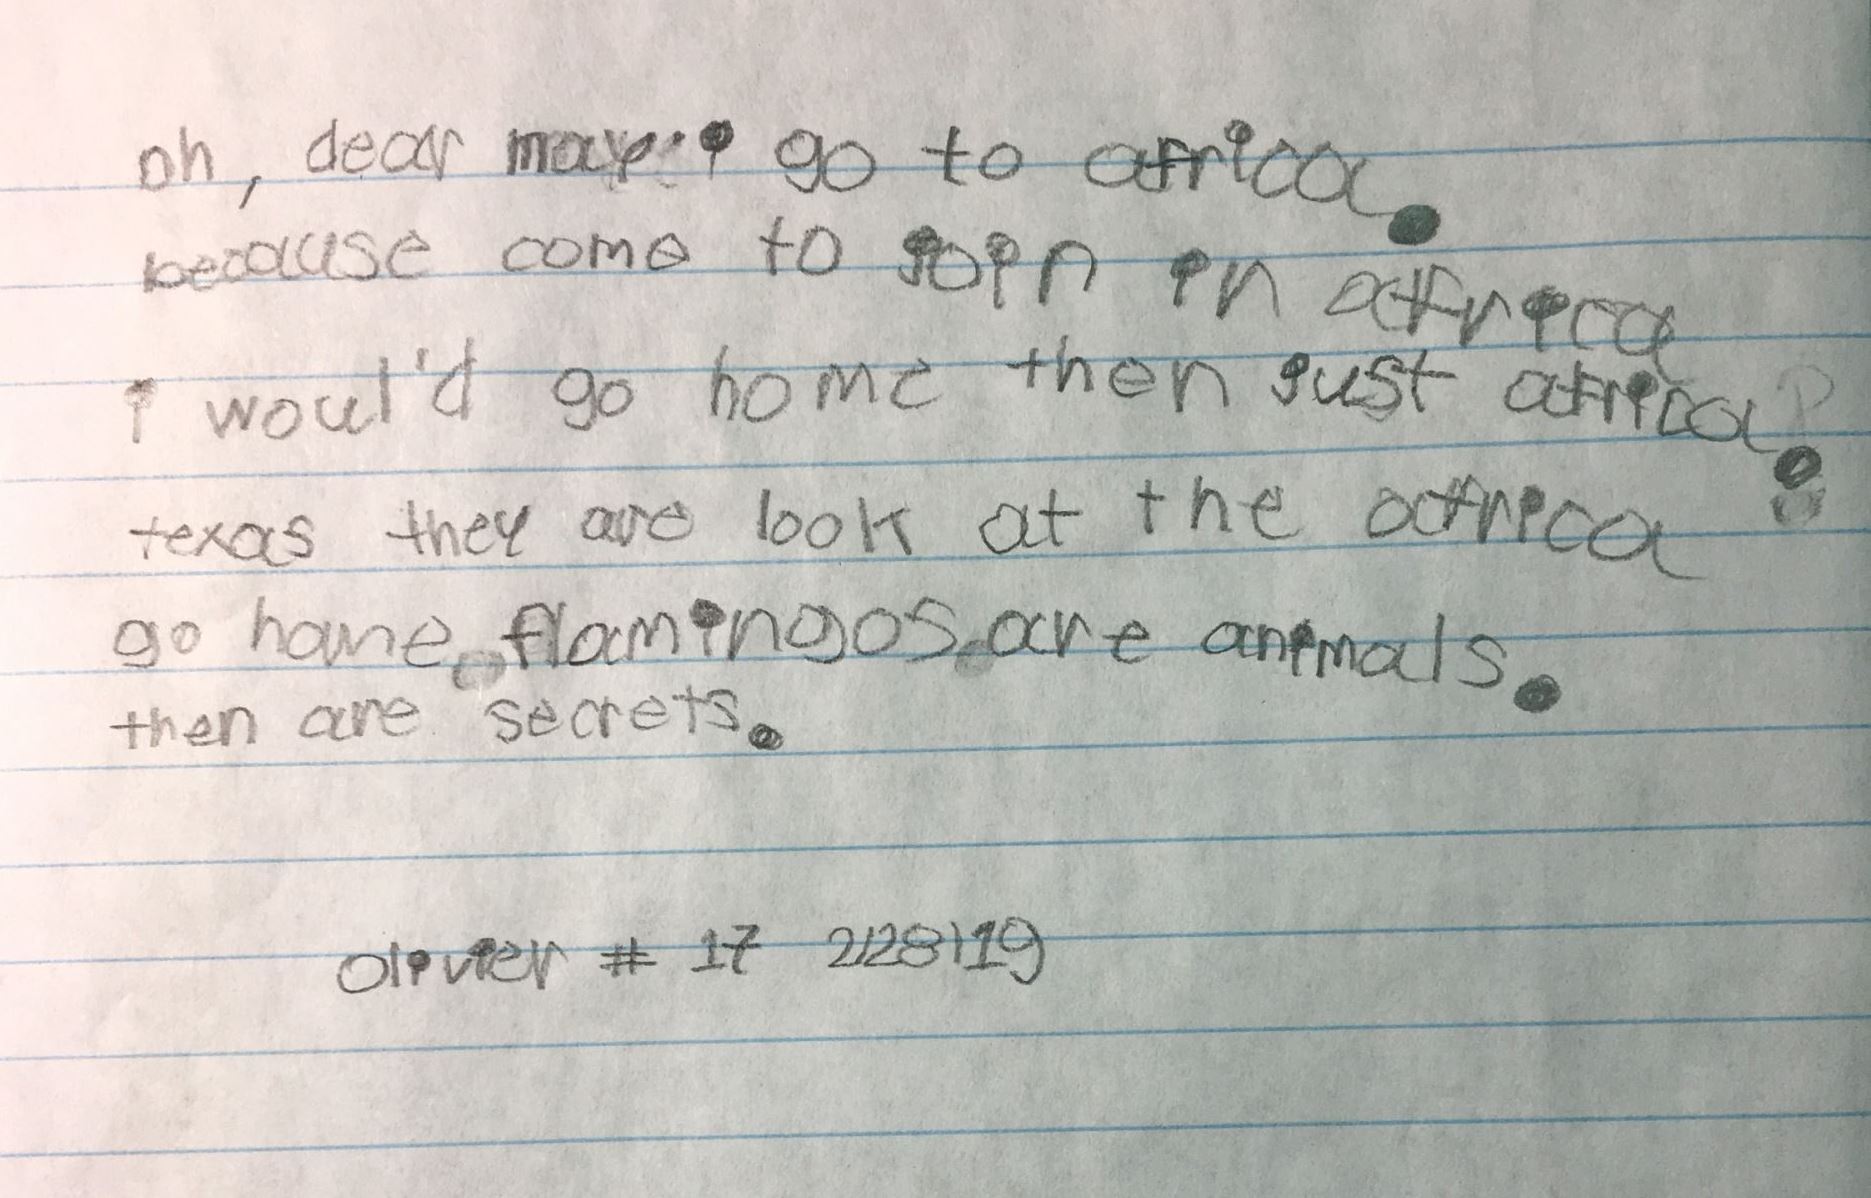 oh, dear may i go to africa.
because come to join in africa
i woul'd go home then just africa.
texas they are look at the africa
go home flamingos are animals.
then are secrets.
Olivier # 17 2/28/19